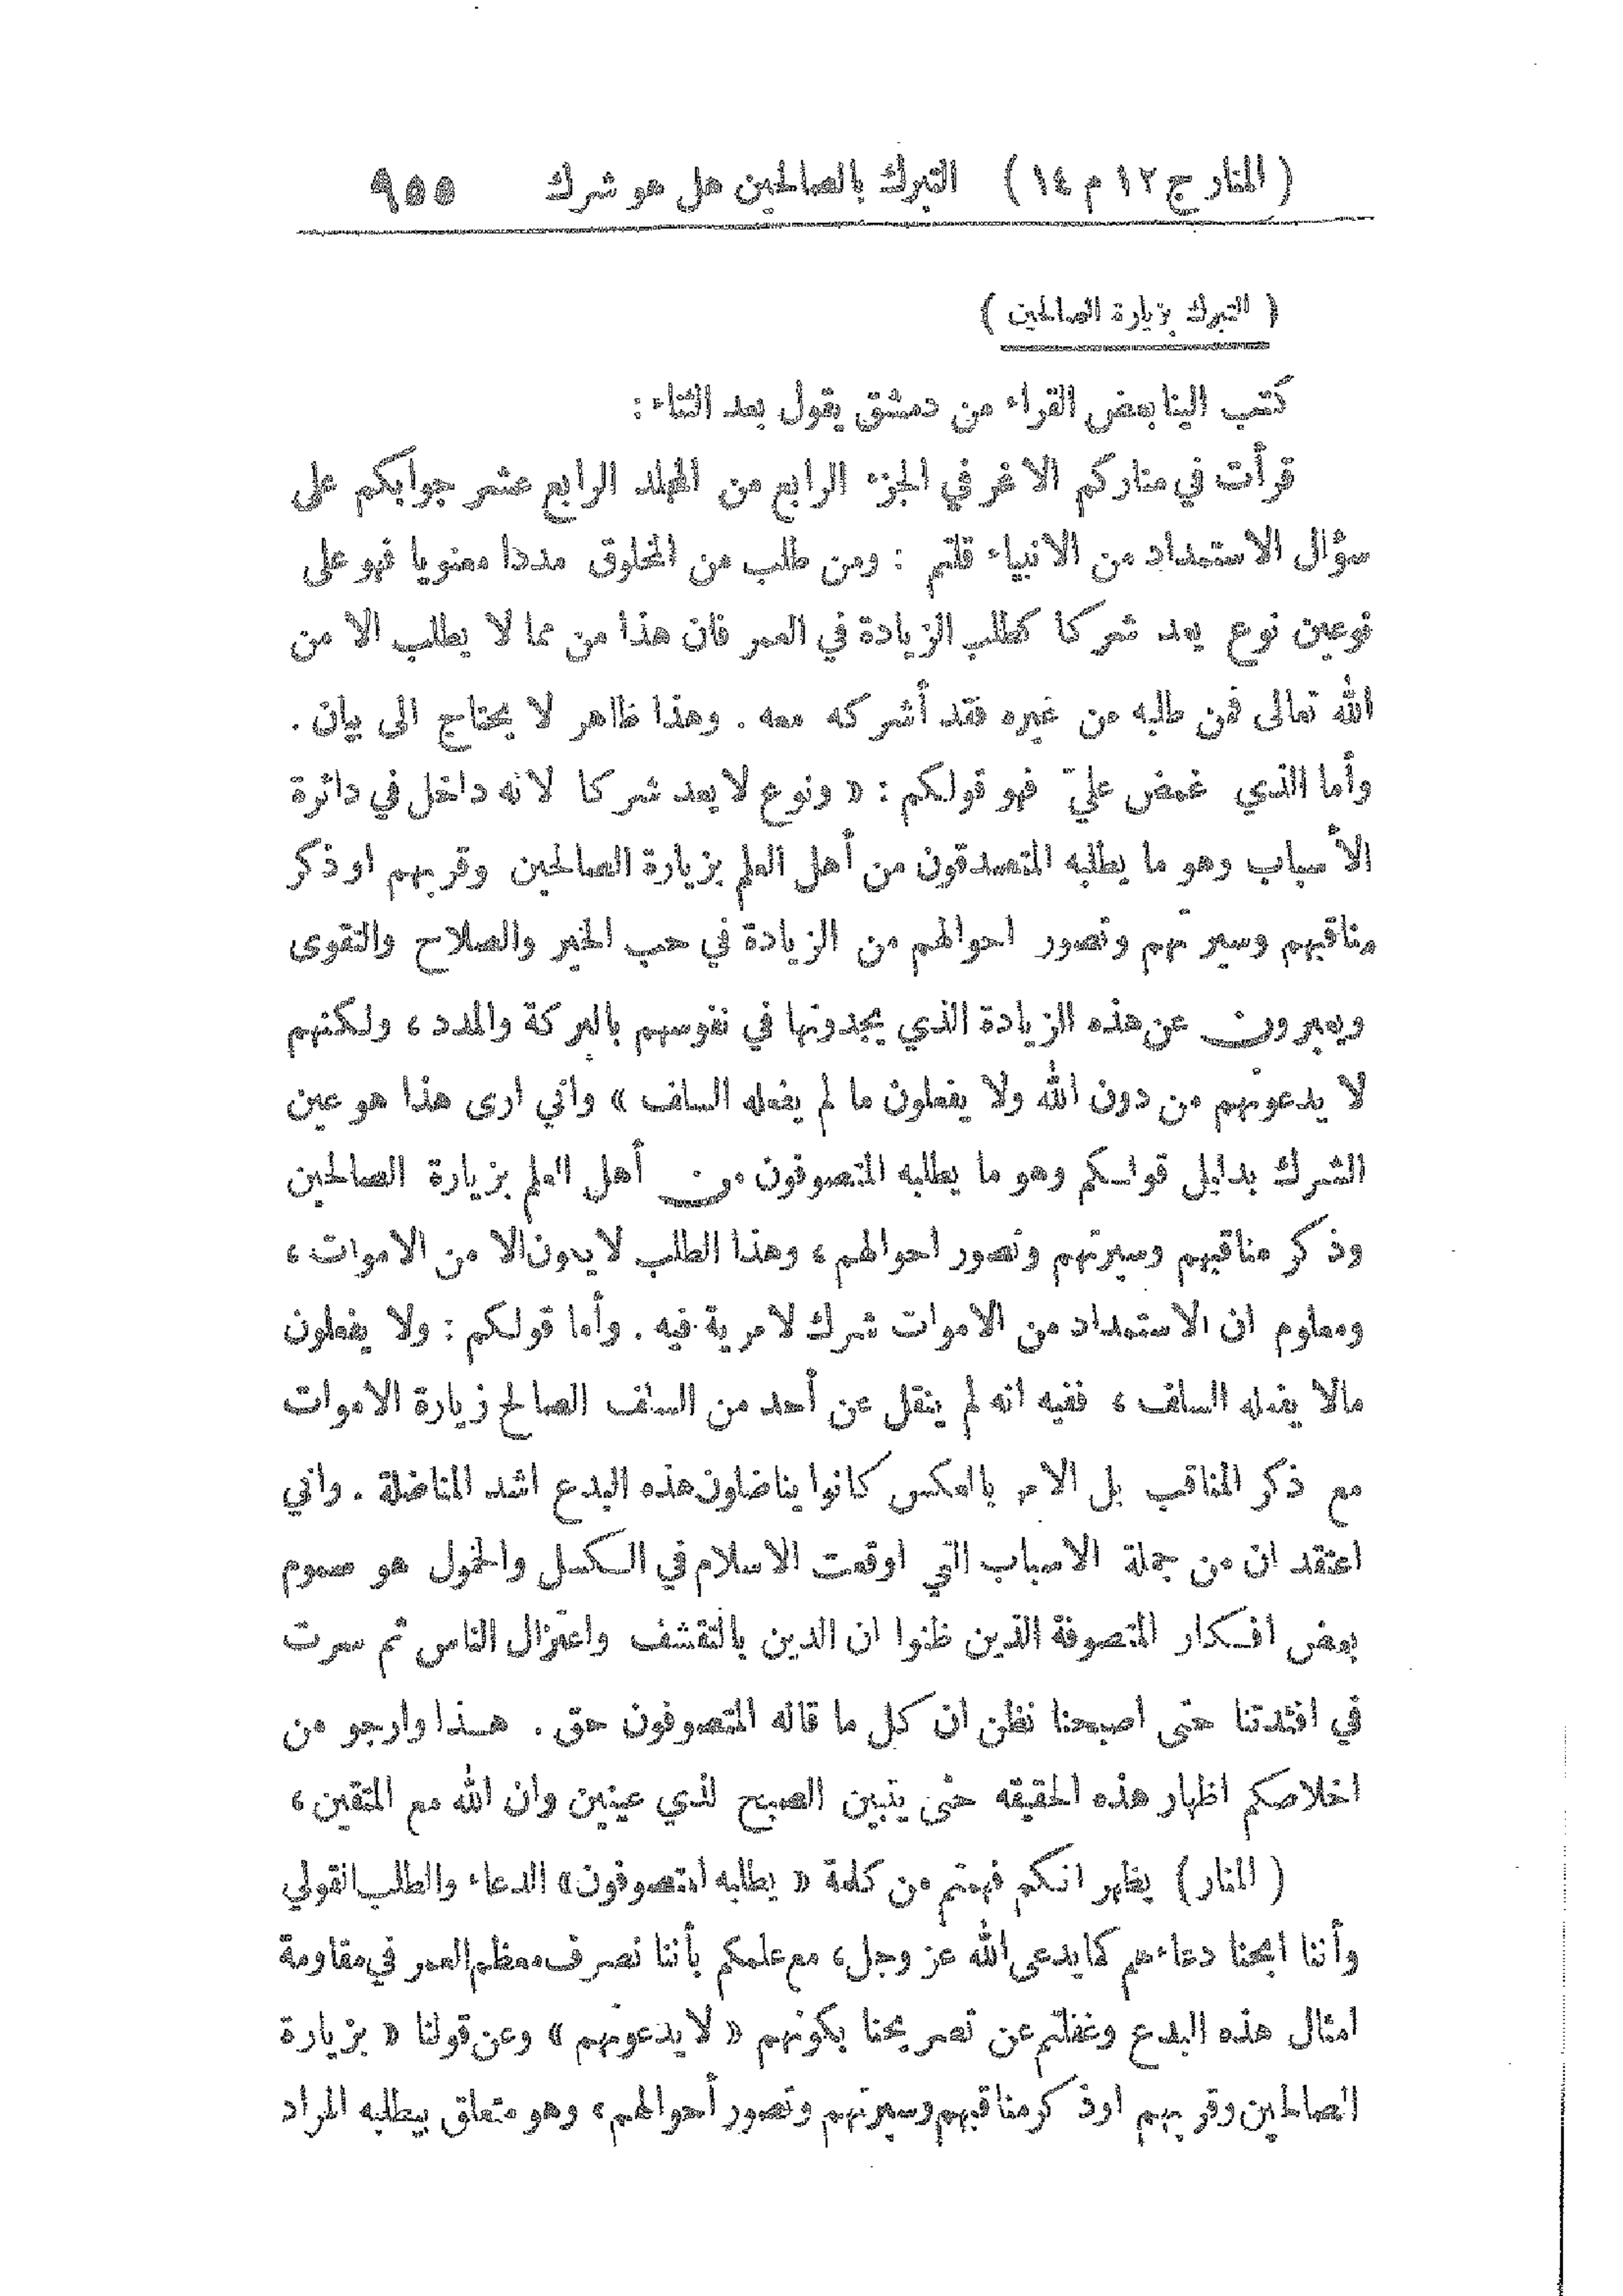 ( المنار ج ١٢ م ١٤ ) التبرك بالصالحين هل هو شرك ٩٥٥
( التبرك بزيارة الصالحين )
كتب الينا بعض القراء من دمشق يقول بعد الثناء :
قرأت في مناركم الاغر في الجزء الرابع من المجلد الرابع عشر جوابكم على
سؤال الاستمداد من الانبياء قلتم : ومن طلب من المخلوق مددا معنويا فهو على
نوعين نوع يعد شركا كطلب الزيادة في العمر فان هذا من مما لا يطلب الا من
الله تعالى فمن طلبه من غيره فقد أشركه معه . وهذا ظاهر لا يحتاج الى بيان .
وأما الذي غمض عليّ فهو قولكم : « ونوع لا يعد شركا لانه داخل في دائرة
الأسباب وهو ما يطلبه المتصدقون من أهل العلم بزيارة الصالحين وقربهم او ذكر
مناقبهم وسيرتهم وتصور احوالهم من الزيادة في حب الخير والصلاح والتقوى
ويعبرون عن هذه الزيادة الذي يجدونها في نفوسهم بالبركة والمدد ، ولكنهم
لا يدعونهم من دون الله ولا يفعلون ما لم يفعله السلف » واني ارى هذا هو عين
الشرك بدليل قولكم وهو ما يطلبه المتصوفون من أهل العلم بزيارة الصالحين
وذكر مناقبهم وسيرتهم وتصور احوالهم ، وهذا الطلب لا يكون الا من الاموات ،
ومعلوم ان الاستمداد من الاموات شرك لا مرية فيه . وأما قولكم : ولا يفعلون
مالا يفعله السلف ، ففيه انه لم ينقل عن أحد من السلف الصالح زيارة الاموات
مع ذكر المناقب بل الامر بالعكس كانوا يناضلون هذه البدع اشد المناضلة . واني
اعتقد ان من جملة الاسباب التي اوقعت الاسلام في الكسل والخمول هو سموم
بعض افكار المتصوفة الذين ظنوا ان الدين بالتقشف واعتزال الناس ثم سرت
في افئدتنا حتى اصبحنا نظن ان كل ما قاله المتصوفون حق . هذا وارجو من
اخلاصكم اظهار هذه الحقيقه حتى يتبين الصبح لذي عينين وان الله مع المتقين ،
( المنار ) يظهر انكم فهمتم من كلمة « يطلبه المتصوفون » الدعاء والطلب القولي
وأننا ابحنا دعاءهم كما يدعى الله عز وجل ، مع علمكم بأننا نصرف معظم العمر في مقاومة
امثال هذه البدع وغفلتم عن تصريحنا بكونهم « لا يدعونهم » وعن قولنا « بزيارة
الصالحين وقربهم اوذكر مناقبهم وسيرتهم وتصور أحوالهم » وهو متعلق بيطلبه المراد